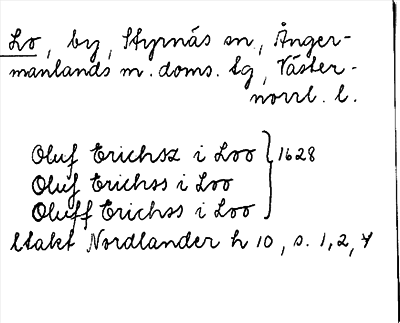 Lo, by, Styrnäs sn, Ånger-
manlands m. doms. tg, Väster-
norrl. l.
Oluf Erichsz i Loo } 1628
Oluf Erichss i Loo
Oluff Erichss i Loo
Utakt Nordlander h 10, s. 1, 2, 4